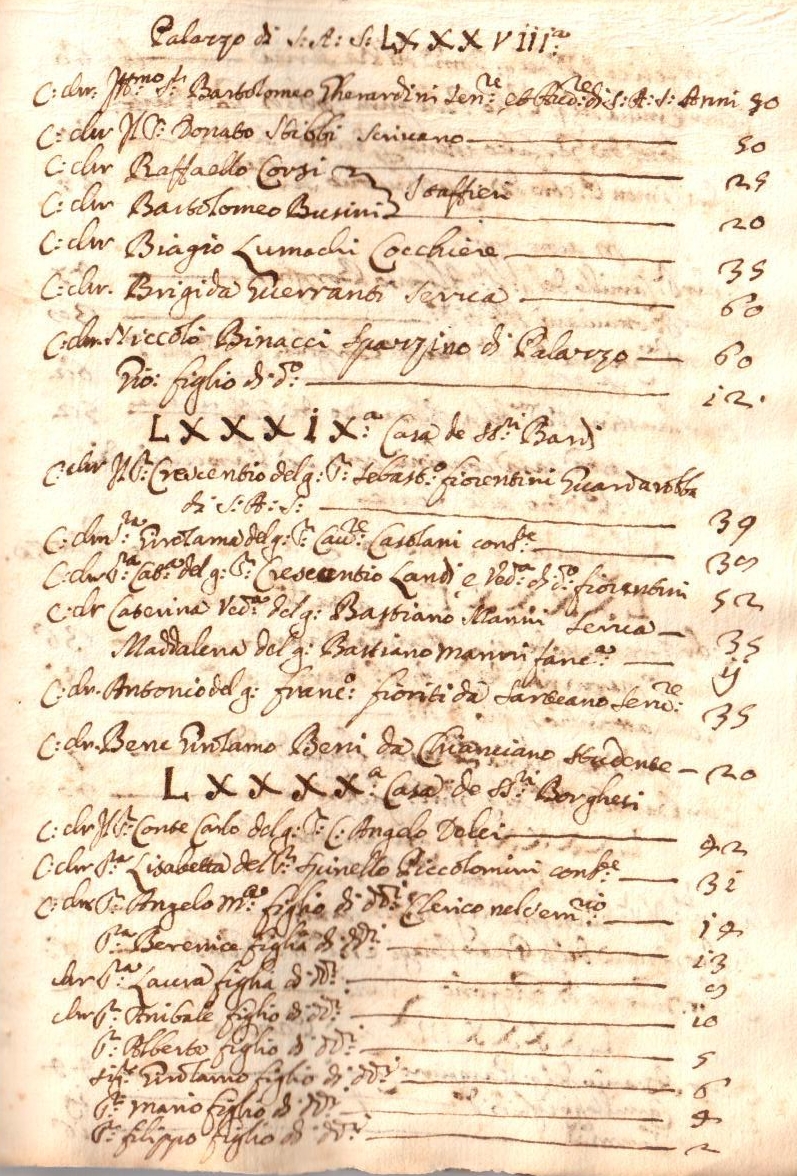 Palazzo di S: A: S: LXXXVIIIa
C: chr. Illmo Sr Bartolomeo Gherardini Tenre et Audre di S: A: S: Anni 50
C: chr Il Sr: Donato Stibbi Scrivano 50
C: chr Raffaello Corsi 25
Staffieri
C: chr Bartolomeo Busini 20
C: chr Biagio Lumachi Cocchiere 35
C: chr. Brigida Guerranti Serva 60
C: chr. Niccolò Binacci Spazzino di Palazzo 60
Gio: figlio di do: 12.
LXXXIX:a Casa de SSri Bardi
C: chr Il Sr: Crescentio del q: Sr: Sebasto: fiorentini Guardarobba
di S: A: S: 39
C: chr Sra: Girolama del q: Sr: Cavre Casolani confe 39
C: chr Sra Cata: del q: Sr: Crescentio Landi e Veda: di do: fiorentini 52
C: chr Caterina Veda: del q: Bastiano Manni Serva 35
Maddalena del q: Bastiano Manni fanca: 11
C: chr. Antonio del q: Franco: fioriti da Sarteano Serre: 35
C: chr. Bene Girolamo Beni da Chianciano Studente 20
LXXXX:a Casa de SSri Borghesi
C: chr Il Sr: Conte Carlo del q: Sr: C: Angelo Delci 42
C: chr Sra: Lisabetta del Sr: Spinello Piccolomini confe 31
C: chr Sr: Angelo Ma: figlio di ddi: Clerico nel Semrio 14
Sra: Berenice figlia di ddi: 13
chr Sra: Laura figlia di ddi: 9
chr Sr: Anibale figlio di ddi: 10
Sr: Alberto figlio di ddi: 5
Sigr: Girolamo figlio di ddi: 6
Sr: Mario figlio di ddi: 4
Sr: filippo figlio di ddi: 2